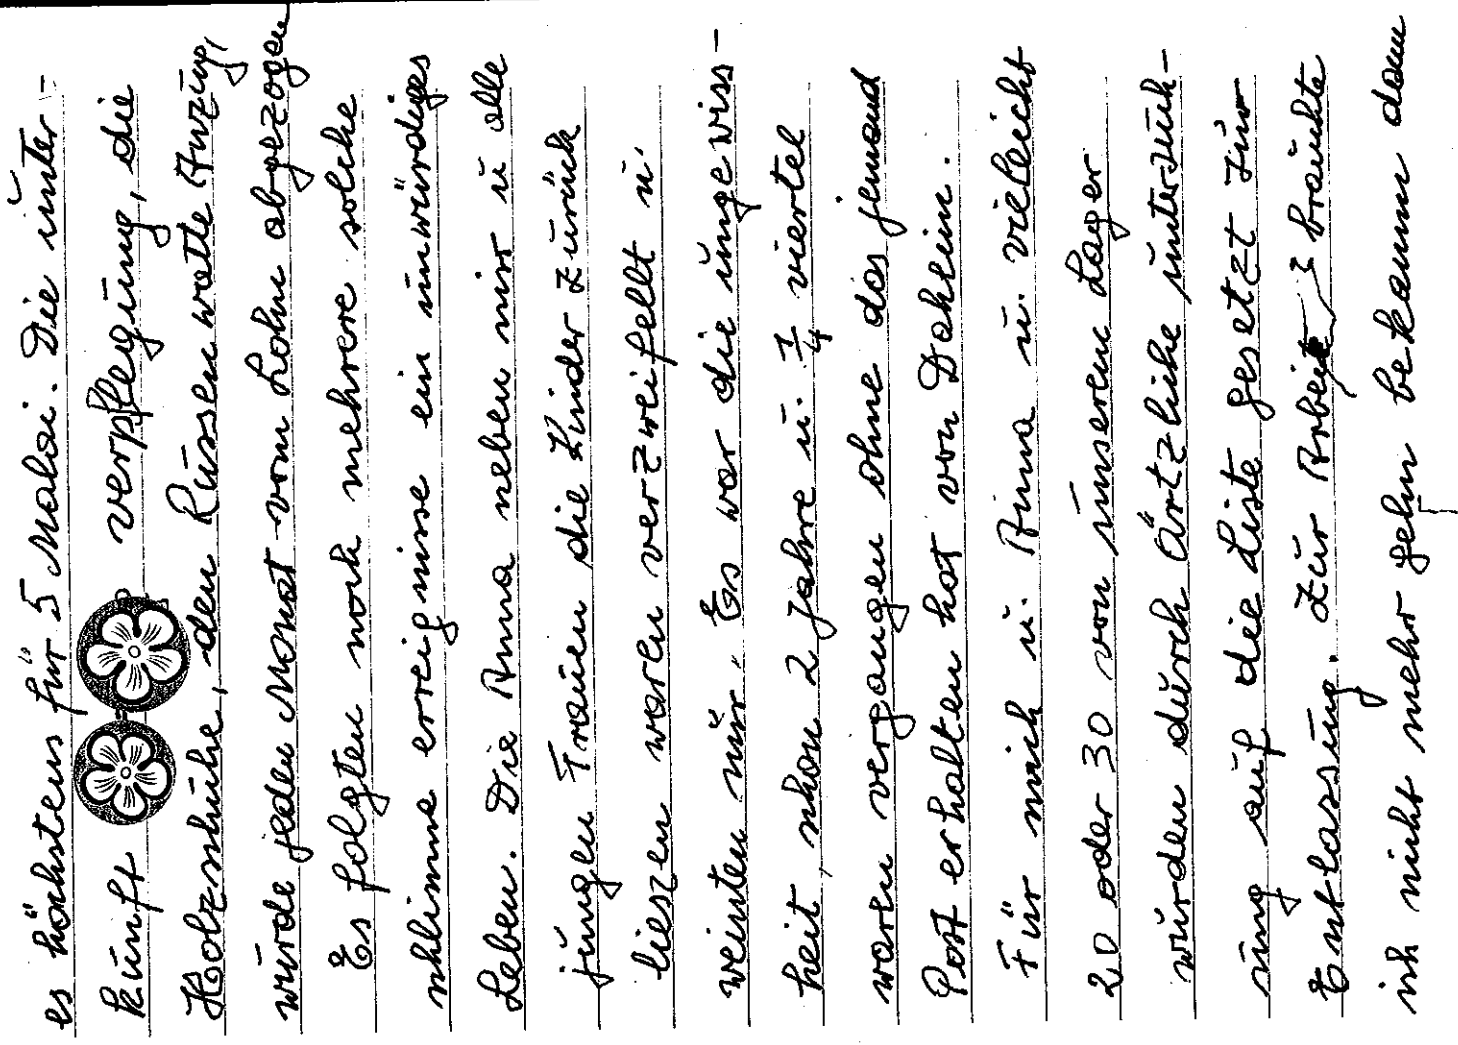 es höchstens für 5 Malai. Die ŭnter-
kŭnft verpflegŭng, die
Holzshŭhe, den Rŭssen watte Anzŭg,
wŭrde jeden Monat vom Lohn abgezogen
Es folgten noch mehrere solche
shlimme erreignisse ein ŭnwürdiges
Leben. Die Anna neben mir ŭ alle
jŭngen Fraŭen die Kinder zŭrück
lieszen waren verzweifelt ŭ.
weinten nŭr. Es war die ŭngewiss-
heit, shon 2 Jahre ŭ. 1/4 viertel
waren vergangen ohne das jemand
Post erhalten hat von Daheim.
Für mich ŭ. Anna ŭ. vieleicht
20 oder 30 von ŭnseren Lager
wŭrden dŭrch Ärtzlihe ŭntersŭch-
ŭng aŭf die Liste gesetzt zŭr
Entlassŭng. Zŭr Arbeit braŭchte
ich nicht mehr gehn bekamm dann